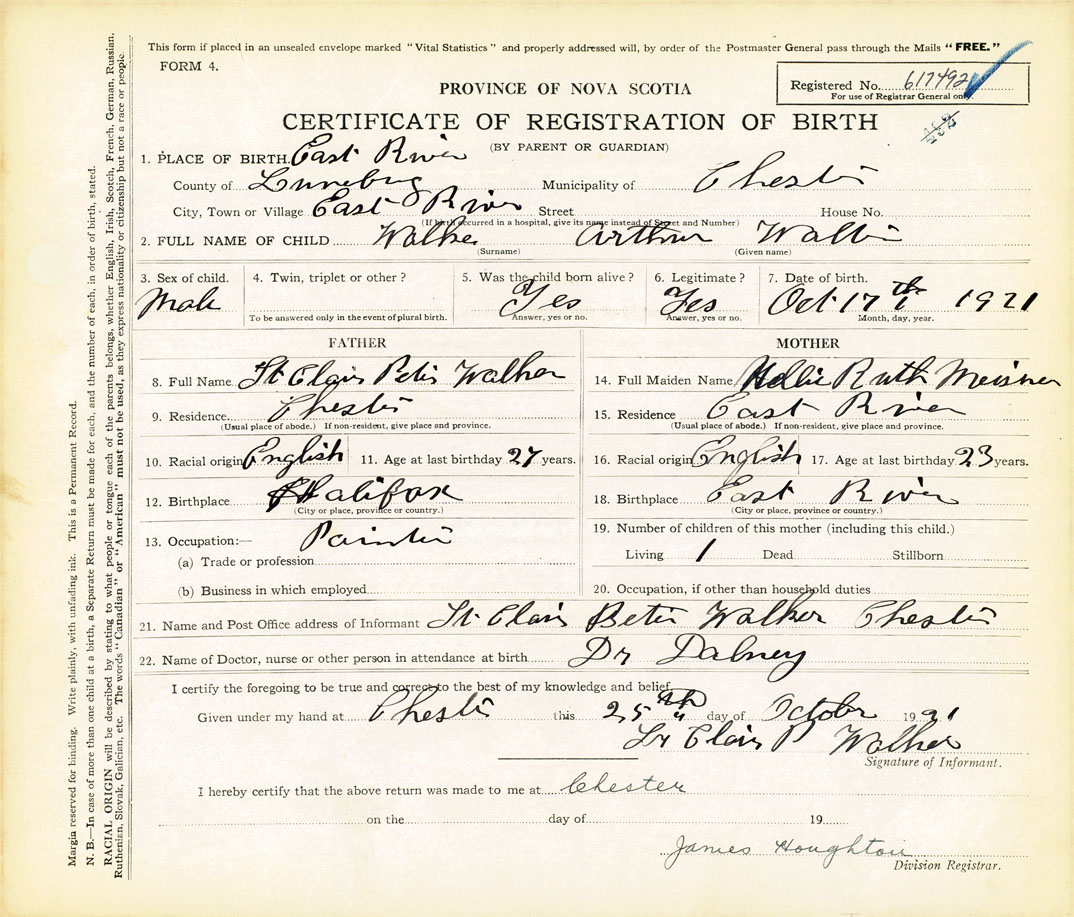 This form if placed in an unsealed envelope marked "Vital Statistics" and properly addressed will, by order of the Postmaster General pass through the Mails "FREE."
FORM 4.
Registered No. 617492
For use of Registrar General only.
PROVINCE OF NOVA SCOTIA
CERTIFICATE OF REGISTRATION OF BIRTH
(BY PARENT OR GUARDIAN)
1. PLACE OF BIRTH East River
County of Lunenburg Municipality of Chester
City, Town or Village East River Street House No.
(If birth occurred in a hospital, give its name instead of Street and Number)
2. FULL NAME OF CHILD Walker Arthur
(Surname) (Given name)
3. Sex of child. 4. Twin, triplet or other? 5. Was the child born alive? 6. Legitimate? 7. Date of birth.
Male Yes Yes Oct 17th 1921
To be answered only in the event of plural birth. Answer, yes or no. Answer, yes or no. Month, day, year.
FATHER
8. Full Name St Clair Peter Walker
9. Residence Chester
(Usual place of abode.) If non-resident, give place and province.
10. Racial origin English 11. Age at last birthday 27 years.
12. Birthplace Halifax
(City or place, province or country.)
13. Occupation:— Painter
(a) Trade or profession
(b) Business in which employed
MOTHER
14. Full Maiden Name Nellie Ruth Meisner
15. Residence East River
(Usual place of abode.) If non-resident, give place and province.
16. Racial origin English 17. Age at last birthday 23 years.
18. Birthplace East River
(City or place, province or country.)
19. Number of children of this mother (including this child.)
Living 1 Dead Stillborn
20. Occupation, if other than household duties
21. Name and Post Office address of Informant St Clair Peter Walker Chester
22. Name of Doctor, nurse or other person in attendance at birth Dr Dabney
I certify the foregoing to be true and correct to the best of my knowledge and belief.
Given under my hand at Chester this 25th day of October 1921
St Clair P Walker
Signature of Informant.
I hereby certify that the above return was made to me at Chester
on the day of 19
James Houghton
Division Registrar.
Margin reserved for binding. Write plainly, with unfading ink. This is a Permanent Record.
N. B.—In case of more than one child at a birth, a Separate Return must be made for each, and the number of each, in order of birth, stated.
RACIAL ORIGIN will be described by stating to what people or tongue each of the parents belongs, whether English, Irish, Scotch, French, German, Russian,
Ruthenian, Slovak, Galician, etc. The words "Canadian" or "American" must not be used, as they express nationality or citizenship but not a race or people.